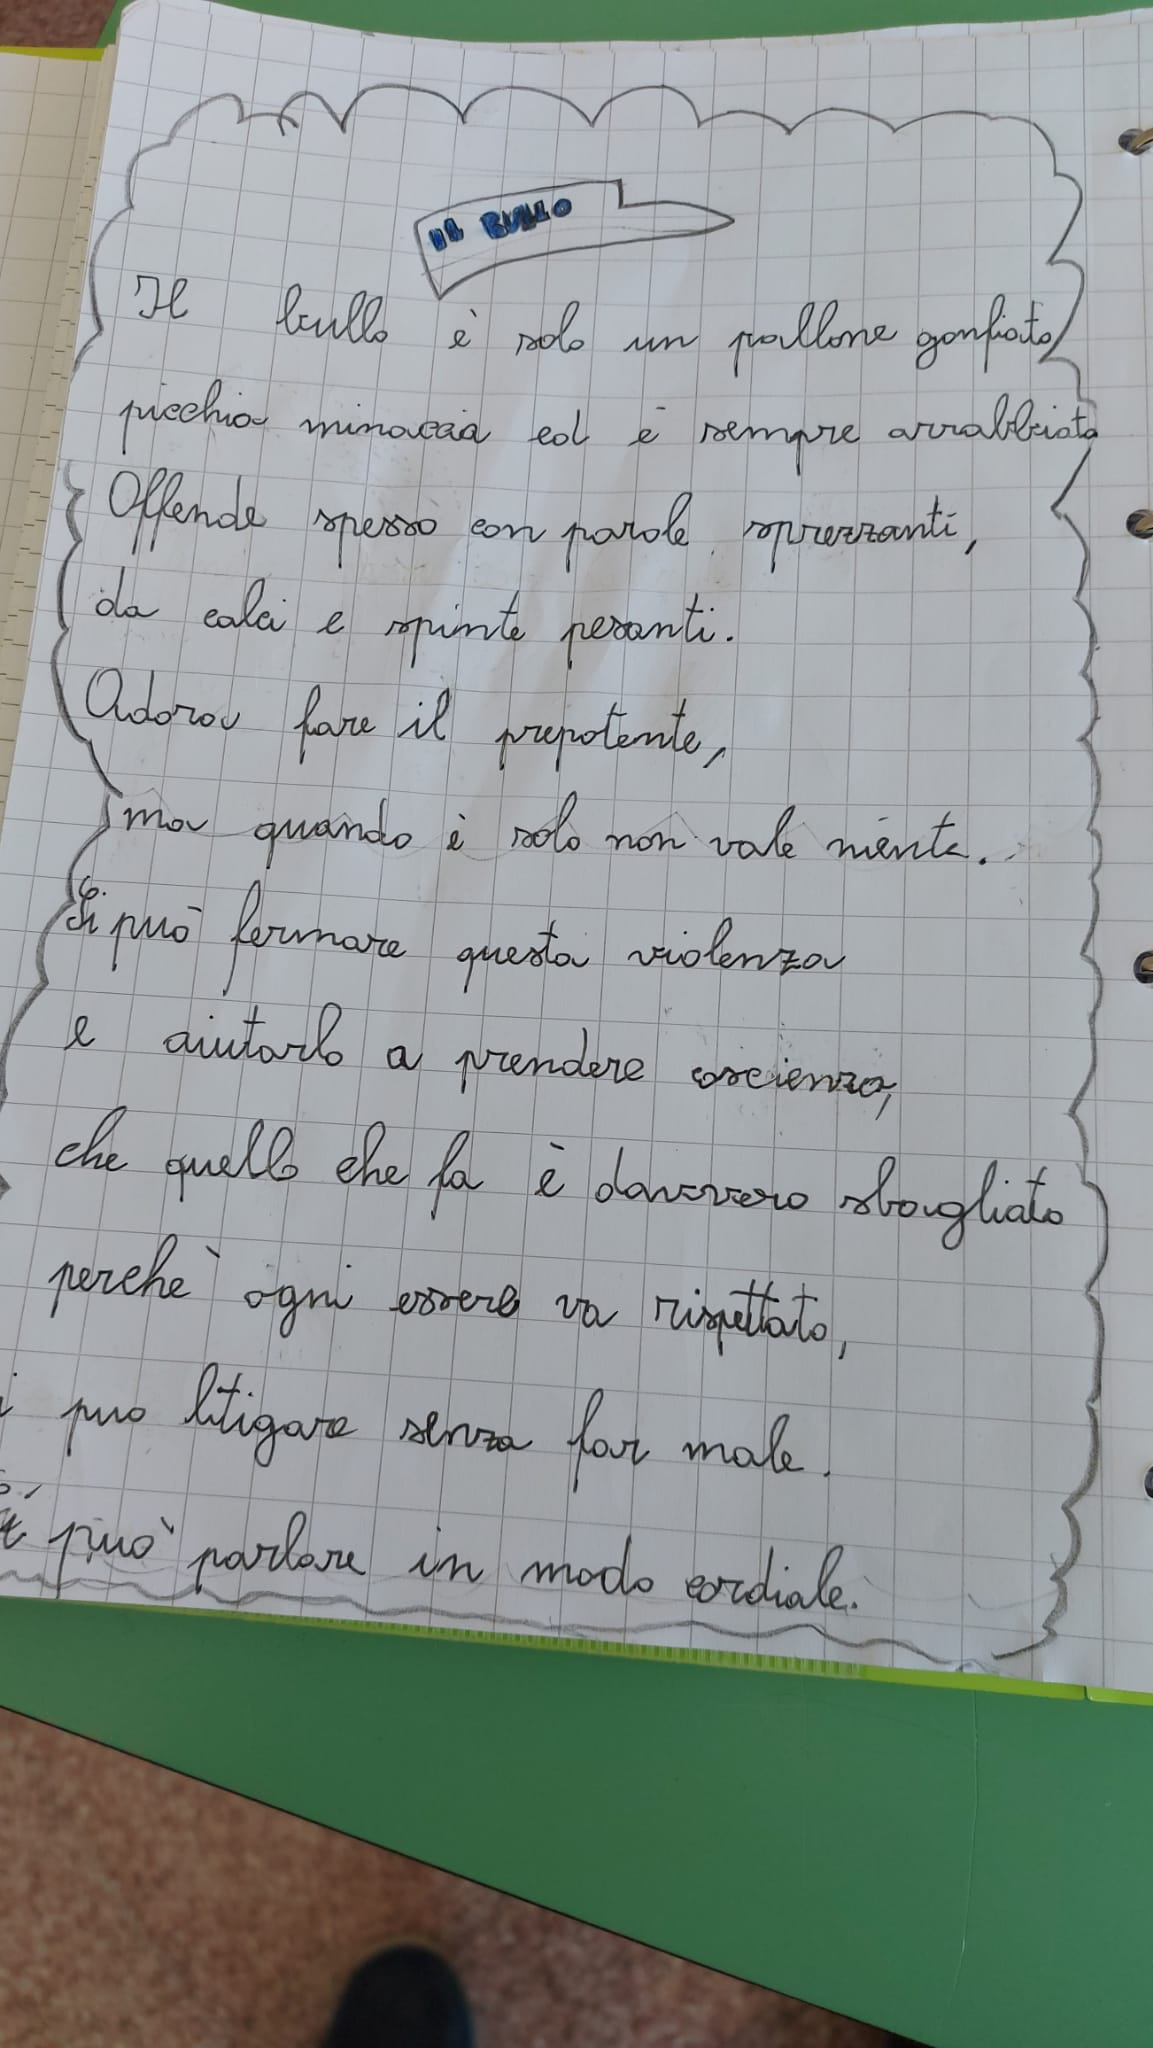 IL BULLO
Il bullo è solo un pallone gonfiato
picchia minaccia ed è sempre arrabbiato
Offende spesso con parole sprezzanti,
da calci e spinte pesanti.
Adora fare il prepotente,
ma quando è solo non vale niente.
Si può fermare questa violenza
e aiutarlo a prendere coscienza,
che quello che fa è davvero sbagliato
perchè ogni essere va rispettato,
i puo litigare senza far male.
può parlare in modo cordiale.